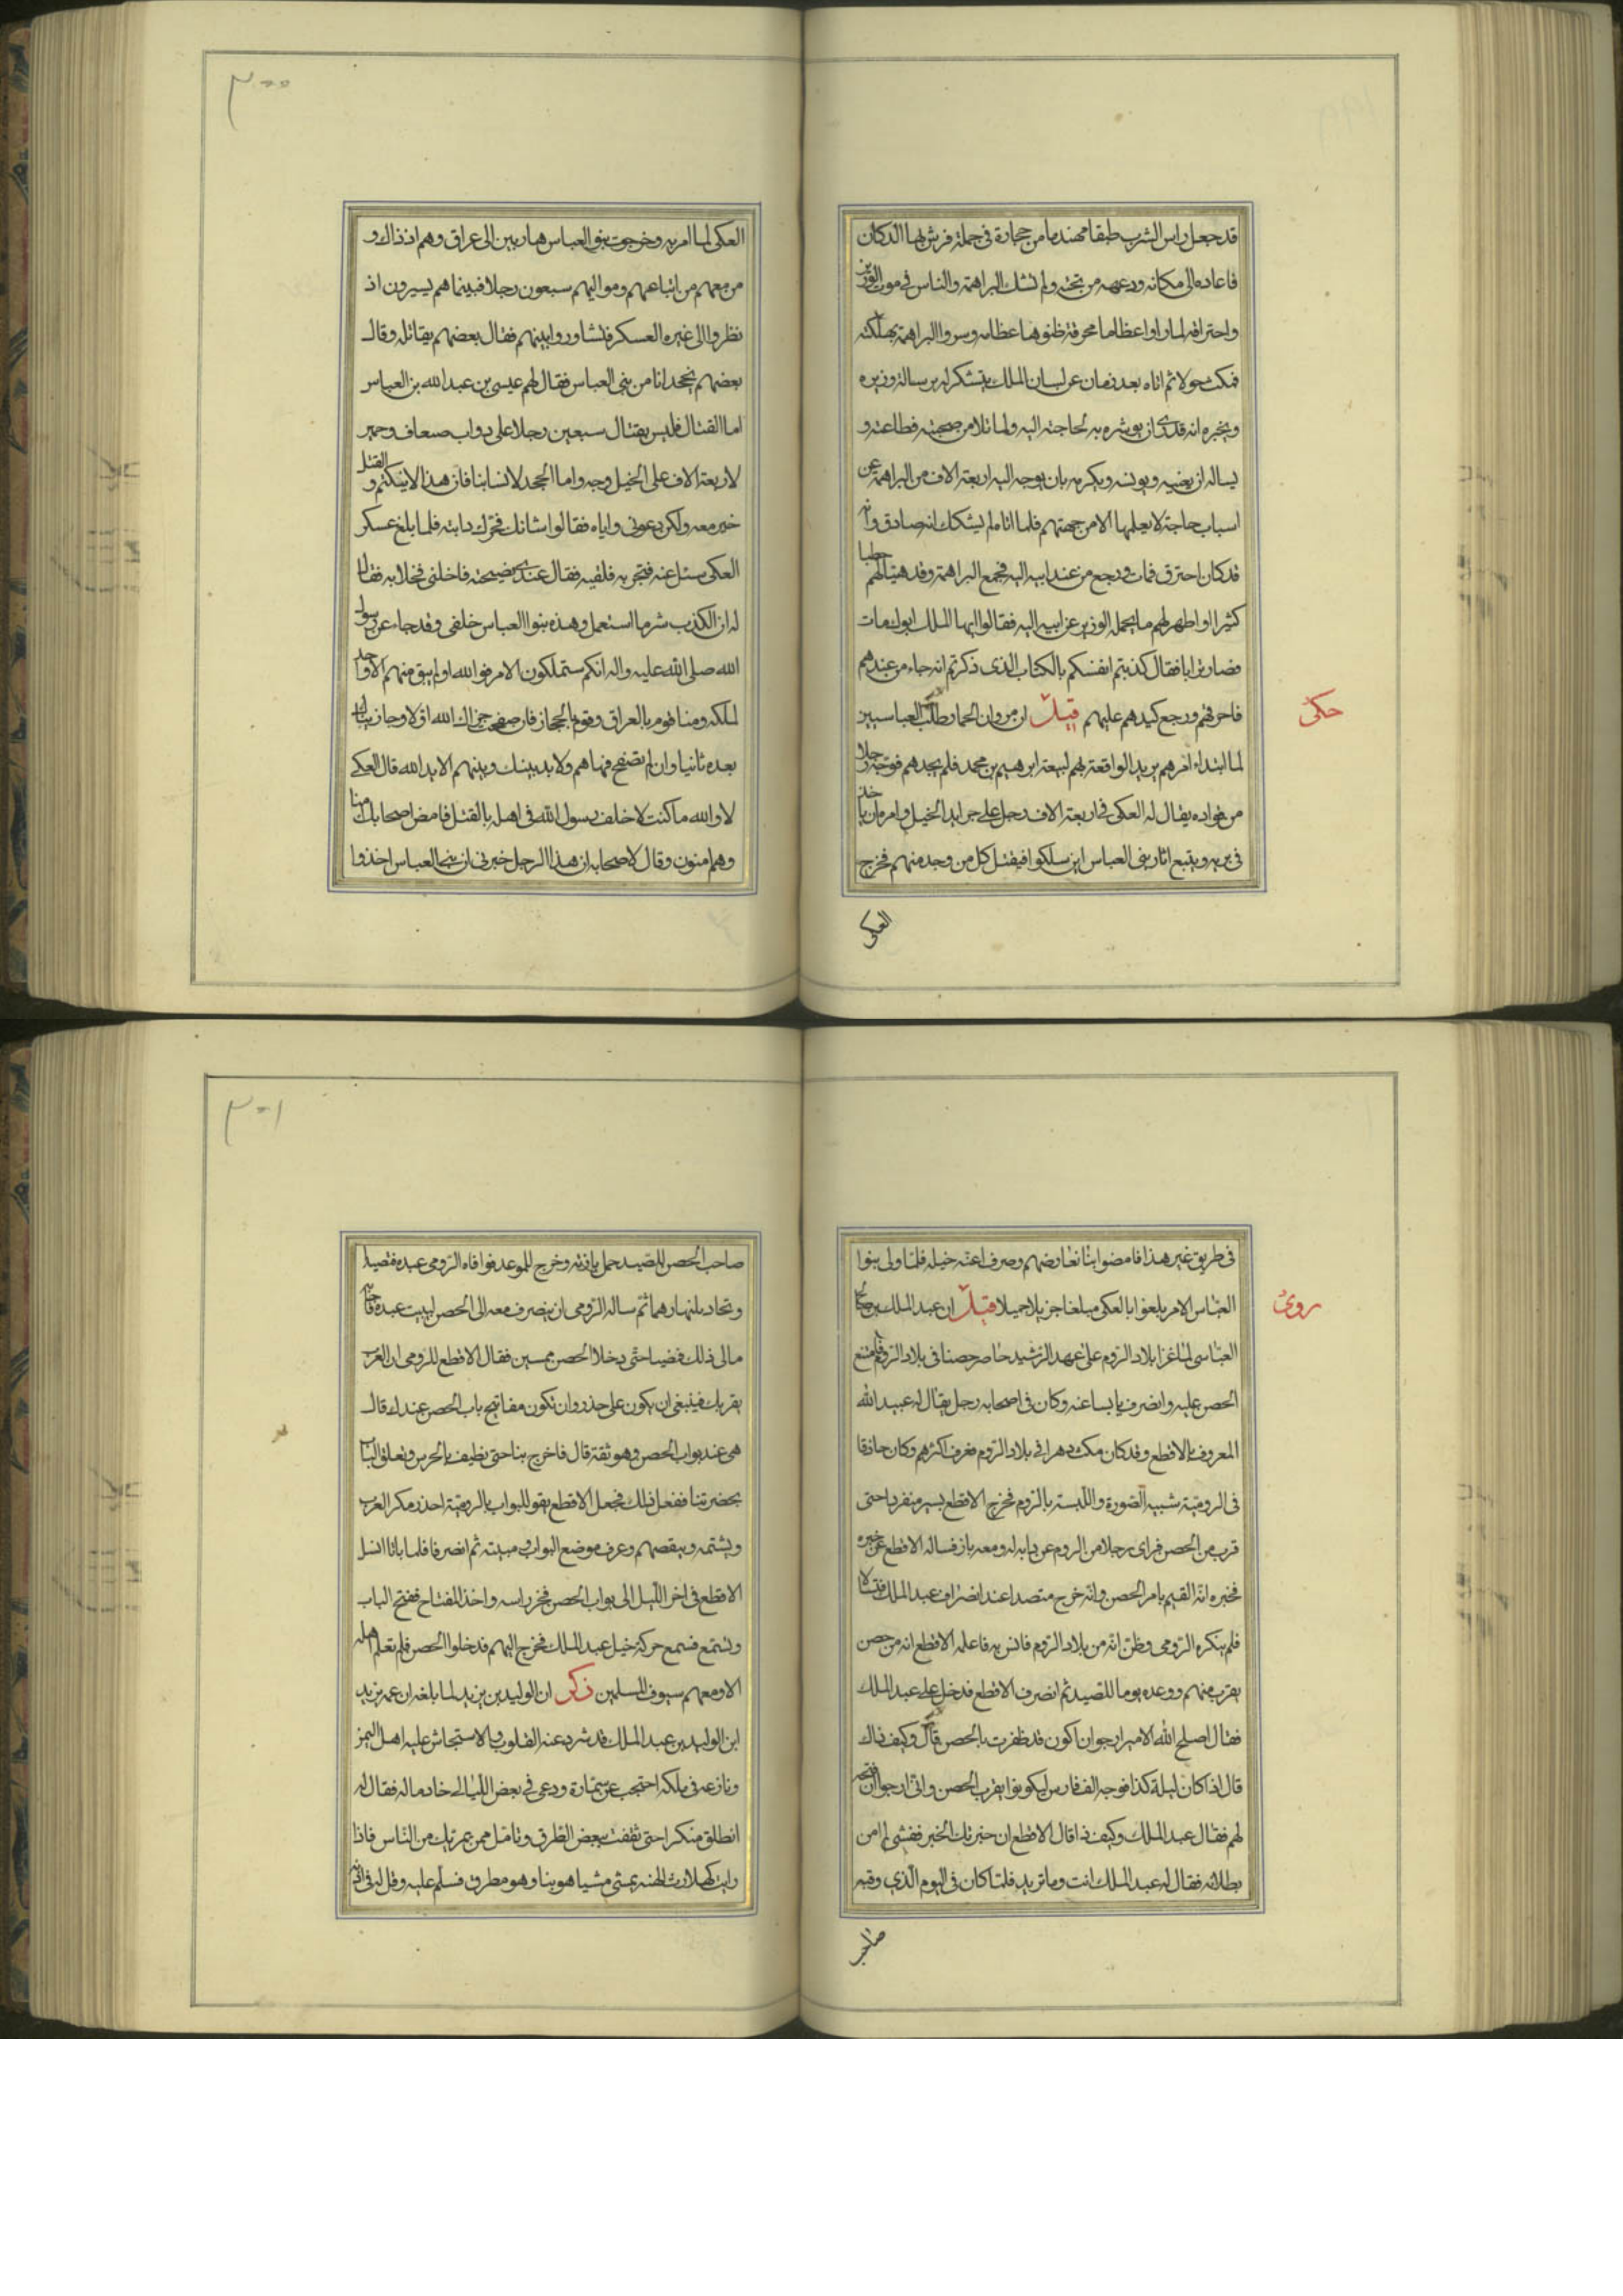 قد جعل راس الشرب طبقا مهندما من حجارة فى جملة فرش بها الدكان
فاعاده الى مكانه ورعهه من تحته ولم تشك البراهمة والناس فى موت الوزير
واحتراقه لما راوا عظاما محرقة ظنوها عظامه وسروا البراهمة بهلكته
فمكث حولا ثم اتاه بعد زمان عن لسان الملك يتشكر له برسالة وزيره
ويخبره انه قد بوشره به لحاجته اليه ولما تلا من صحبته فطاعته و
يساله ان يعنيه ويونسه ويكرمه بان يوجه اليه اربعة الاف من البراهمة عن
اسباب حاجة لا يعلمها الا من جهتهم فلما اتاه لم يشكك انه صادق وانه
قد كان احترق فمات ورجع من عند ابيه اليه فجمع البراهمة وقد هيئا لهم حطبا
كثيرا واظهر لهم ما يحمله الوزير عن ابيه اليه فقالوا ايها الملك ابوك مات
وصار ترابا فقال كذبتم انفسكم بالكتاب الذى ذكرتم انه جاء من عندهم
حكى
فاحرقهم ورجع كيدهم عليهم قيل ان مروان الحمار طلب العباسيين
لما ابتداء امرهم يريد الواقعة بهم لبيعة ابرهيم بن محمد فلم يجدهم فوجه رجلا
من قواده يقال له العكى فى اربعة الاف رجل على جرايد الخيل وامره ان ياخذ
فى بريه ويتبع اثار بنى العباس اين سلكوا فيقتل كل من وجد منهم فخرج
العكى
٣٠٠
العكى لما امر به وخرجت بنو العباس هاربين الى عراق وهم اذ ذاك و
من معهم من اتباعهم ومواليهم سبعون رجلا فبينما هم يسيرون اذ
نظروا الى غبره العسكر فتشاوروا بينهم فقال بعضهم يقاتل وقال
بعضهم نجحد انا من بنى العباس فقال لهم عيسى بن عبد الله بن العباس
اما القتال فليس يقتال سبعين رجلا على دواب ضعاف وحمير
لاربعة الاف على الخيل وجه واما الجحد لانسابنا فان هذا لا ينكتم والقتل
خير معه ولكن دعونى واياه فقالوا شانك فحرك دابته فلما بلغ عسكر
العكى سئل عنه فتجى به فلقيه فقال عندى نصيحة فاخلنى فخلا به فقال
له ان الكذب شر ما استعمل وهذه بنوا العباس خلفى وقد جاء عن رسول
الله صلى الله عليه واله انكم ستملكون الامر فو الله لو لم يبق منهم الا واحد
لملكه ومنا قوم بالعراق وقوم بالحجاز فان صفحت جزاك الله اولا وجازيناك
بعده ثانيا وان لم تصفح فها هم ولا بد بينك وبينهم الا يد الله قال العكى
لا والله ما كنت لاخلف رسول الله فى اهله بالقتل فامض اصحابك منا
وهم امنون وقال لاصحابه ان هذا الرجل خبرنى ان بنى العباس اخذوا
فى طريق غير هذا فامضوا بنا نعارضهم وصرف اعنه خيله فلما ولى بنوا
روى
العباس الامر بلغوا بالعكى مبلغا جزيلا جميلا قيل ان عبد الملك بن صالح
العباسى لما غزا بلاد الروم على عهد الرشيد حاصر حصنا فى بلاد الروم فامتنع
الحصن عليه وانصرف يايسا عنه وكان فى اصحابه رجل يقال له عبيد الله
المعروف بالاقطع وقد كان مكث دهرا فى بلاد الروم فعرف اكثرهم وكان حاذقا
فى الرومية شبيه الصورة واللبسة بالروم فخرج الاقطع يسير منفردا حتى
قرب من الحصن فراى رجلا من الروم عن دابه له ومعه باز فساله الاقطع عن خبره
فخبره انه القيم بامر الحصن وانه خرج متصيدا عند انصراف عبد الملك
فلم ينكره الرومى وظن انه من بلاد الروم فانس به فاعلمه الاقطع انه من حصن
يقرب منهم ووعده يوما للتصيد ثم انصرف الاقطع فدخل على عبد الملك
فقال اصلح الله الامير ارجو ان اكون قد ظفرت بالحصن قال وكيف ذاك
قال اذا كان ليلة كذا فوجه الف فارس ليكونوا بقرب الحصن وانى ارجو ان افتحه
لهم فقال عبد الملك وكيف ذا قال الاقطع ان خبرتك الخبر ففشى لم امن
بطلانه فقال له عبد الملك انت وما تريد فلما كان فى اليوم الذى وقبه
صاحب
٣٠١
صاحب الحصن للصيد حمل بازنه وخرج للموعد فوافاه الرومى عبده فتصيدا
وتحادثا نهارهما ثم ساله الرومى ان ينصرف معه الى الحصن ليبيت عنده فاجابه
ما لى ذلك فمضيا حتى دخلا الحصن ممسين فقال الاقطع للرومى ان العرب
يقربك فينبغى ان يكون على حذر وان تكون مفاتيح باب الحصن عندك قال
هى عند بواب الحصن وهو ثقة قال فاخرج بنا حتى نطيف بالحرس وتغلق الباب
بحضرتنا ففعل ذلك فجعل الاقطع يقو للبواب بالرومية احذر مكر العرب
ويشتمه وينقصهم وعرف موضع البواب ومبيته ثم انصرفا فلما باتا انسل
الاقطع فى اخر الليل الى بواب الحصن فحز راسه واخذ المفتاح ففتح الباب
وتسمع فسمع حركة خيل عبد الملك فخرج اليهم فدخلوا الحصن فلم تعلم اهله
الا ومعهم سيوف المسلمين ذكر ان الوليد بن يزيد لما بلغه ان عمه يزيد
ابن الوليد بن عبد الملك قد شرد عنه القلوب والاستجاش عليه اهل اليمن
ونازعه فى ملكه احتجب عن سماره ودعى فى بعض الليالى خادما له فقال له
انطلق متنكرا حتى تقف ببعض الطرق وتامل ممن يمر بك من الناس فاذا
رايت كهلا رث الهيئه يمشى مشيا هوينا وهو مطرق فسلم عليه وقل له فى اذنه